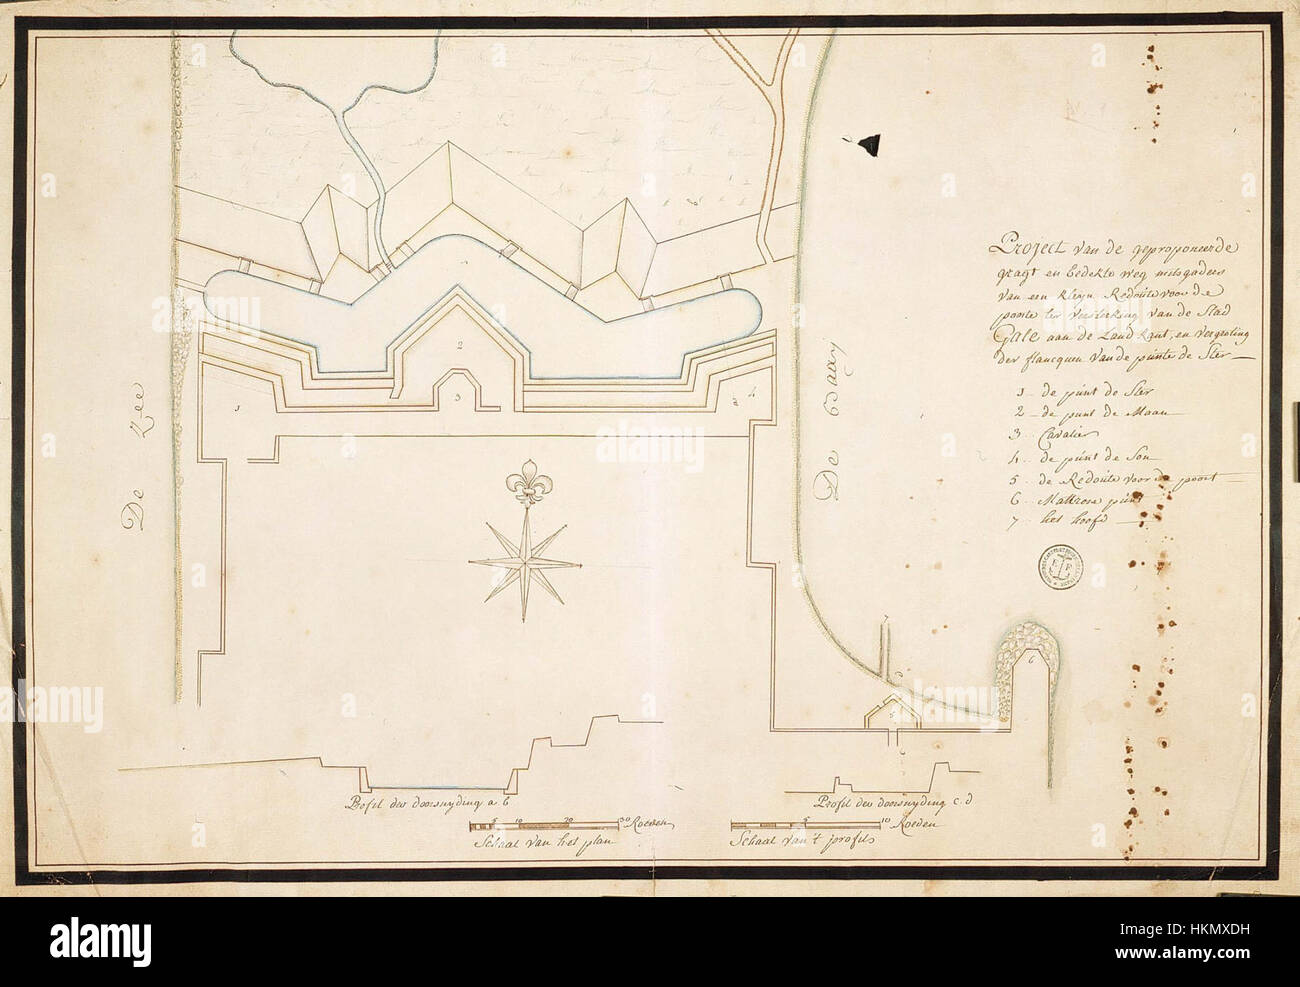 Project van de geproponeerde
gragt en bedekte weg mitsgaders
van een kleyn Redoute voor de
poorte ter versterking van de Stad
Gale aan de Land kant, en vergroting
der flancquen van de punte de Ster
1 de punt de Ster
2 de punt de Maan
3 Cavalier
4 de punt de Son
5 de Redoute voor de poort
6 Mattrose punt
7 het hoofd
De Zee
De Baay
1
2
3
4
7
d
5
c
6
Profil der doorsnyding a. b
5 10 20 30 Roeden
Schaal van het plan
Profil der doorsnyding c. d
5 10 Roeden
Schaal van 't profils
alamy
a
Image ID: HKMXDH
www.alamy.com